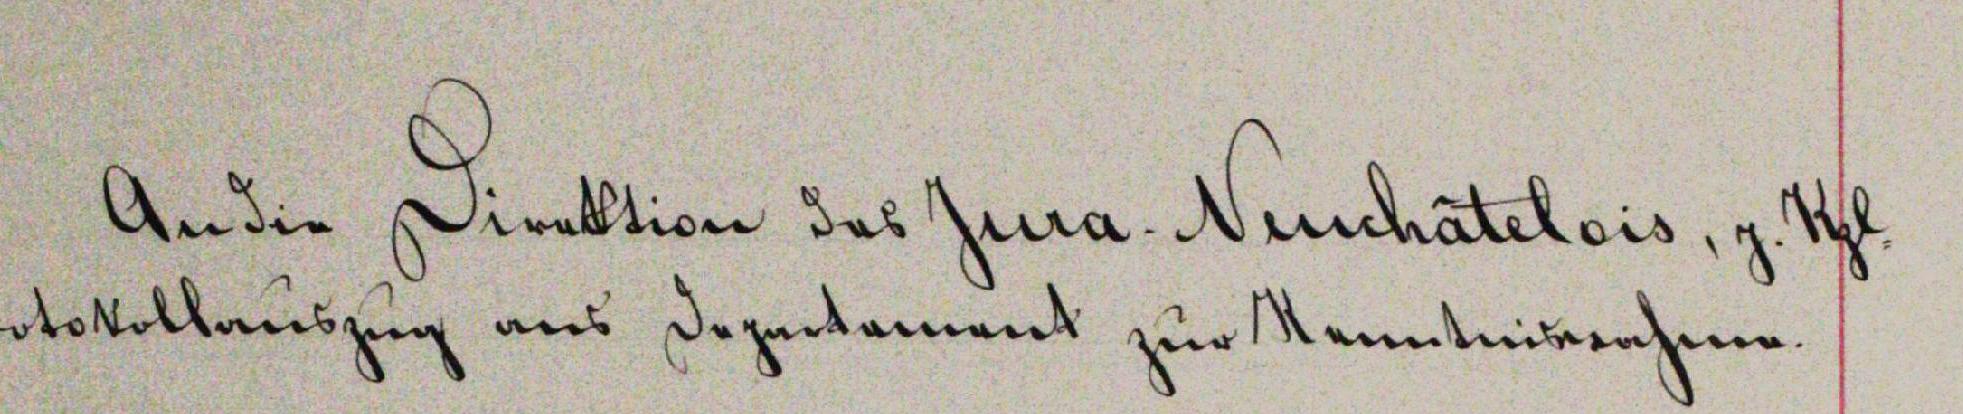 An die Direktion des Jura-Neuchâtelois, z. Kzl.
otokollauszug ans Departement zur Kenntnisnahme.